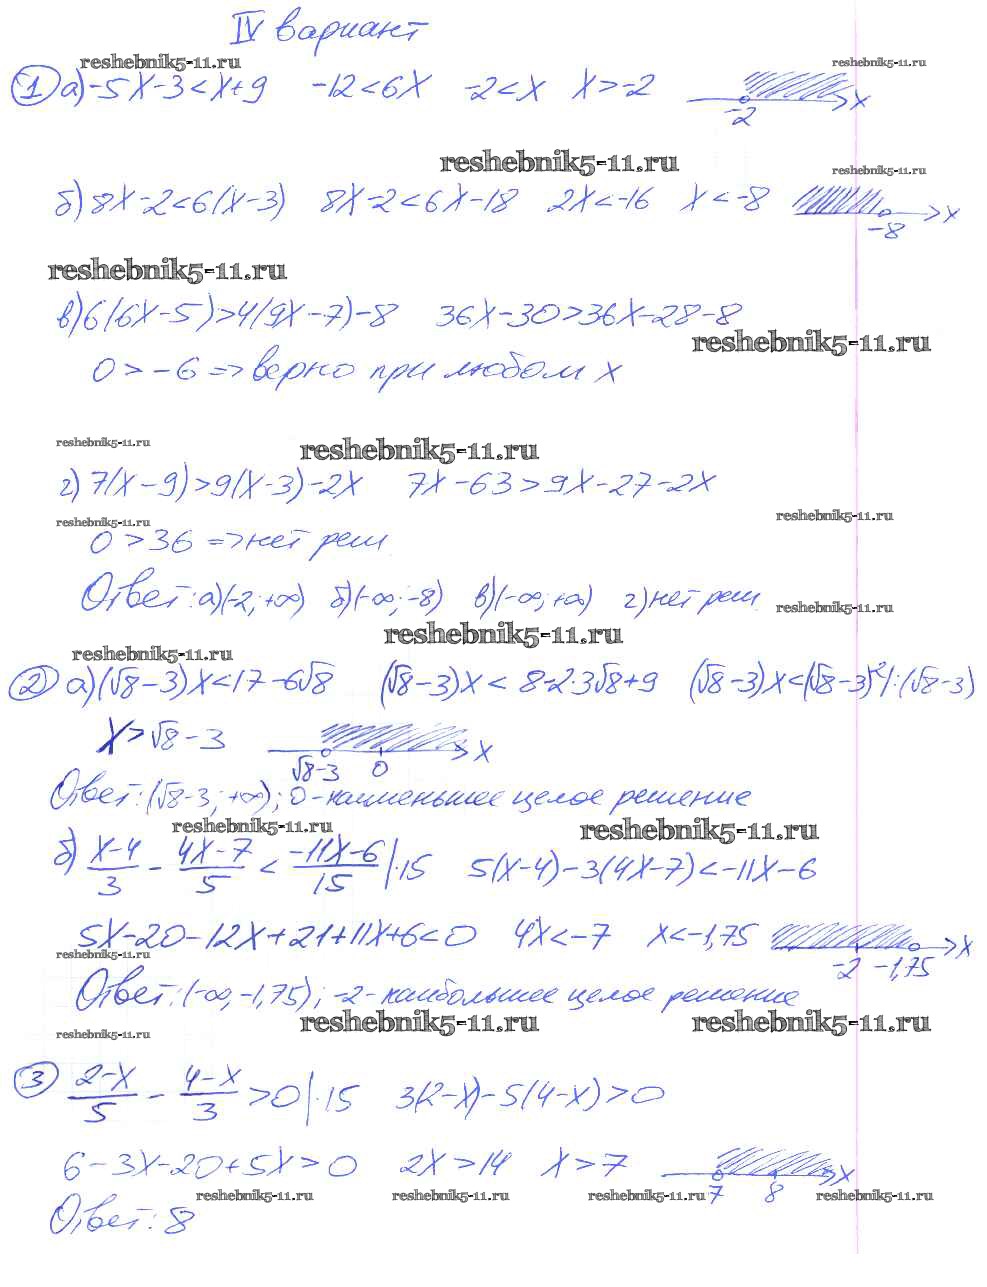 IV вариант
reshebnik5-11.ru reshebnik5-11.ru
1 а) -5x-3<x+9 -12<6x -2<x x>-2 -2 x
reshebnik5-11.ru reshebnik5-11.ru
б) 8x-2<6(x-3) 8x-2<6x-18 2x<-16 x<-8 -8 x
reshebnik5-11.ru
в) 6(6x-5)>4(9x-7)-8 36x-30>36x-28-8
reshebnik5-11.ru
0>-6 => верно при любом x
reshebnik5-11.ru reshebnik5-11.ru
г) 7(x-9)>9(x-3)-2x 7x-63>9x-27-2x
reshebnik5-11.ru reshebnik5-11.ru
0>36 => нет реш
Ответ: а)(-2;+∞) б)(-∞;-8) в)(-∞;+∞) г) нет реш.
reshebnik5-11.ru
reshebnik5-11.ru
reshebnik5-11.ru
2 а) (√8-3)x<17-6√8 (√8-3)x<8-2·3√8+9 (√8-3)x<(√8-3)²|:(√8-3)
x>√8-3 √8-3 0 x
Ответ: (√8-3;+∞); 0-наименьшее целое решение
reshebnik5-11.ru reshebnik5-11.ru
б) (x-4)/3 - (4x-7)/5 < (-11x-6)/15 |·15 5(x-4)-3(4x-7)<-11x-6
5x-20-12x+21+11x+6<0 4x<-7 x<-1,75 -2 -1,75 x
reshebnik5-11.ru
Ответ: (-∞;-1,75); -2-наибольшее целое решение
reshebnik5-11.ru reshebnik5-11.ru reshebnik5-11.ru
3 (2-x)/5 - (4-x)/3 >0|·15 3(2-x)-5(4-x)>0
6-3x-20+5x>0 2x>14 x>7 7 8 x
reshebnik5-11.ru reshebnik5-11.ru reshebnik5-11.ru reshebnik5-11.ru
Ответ: 8